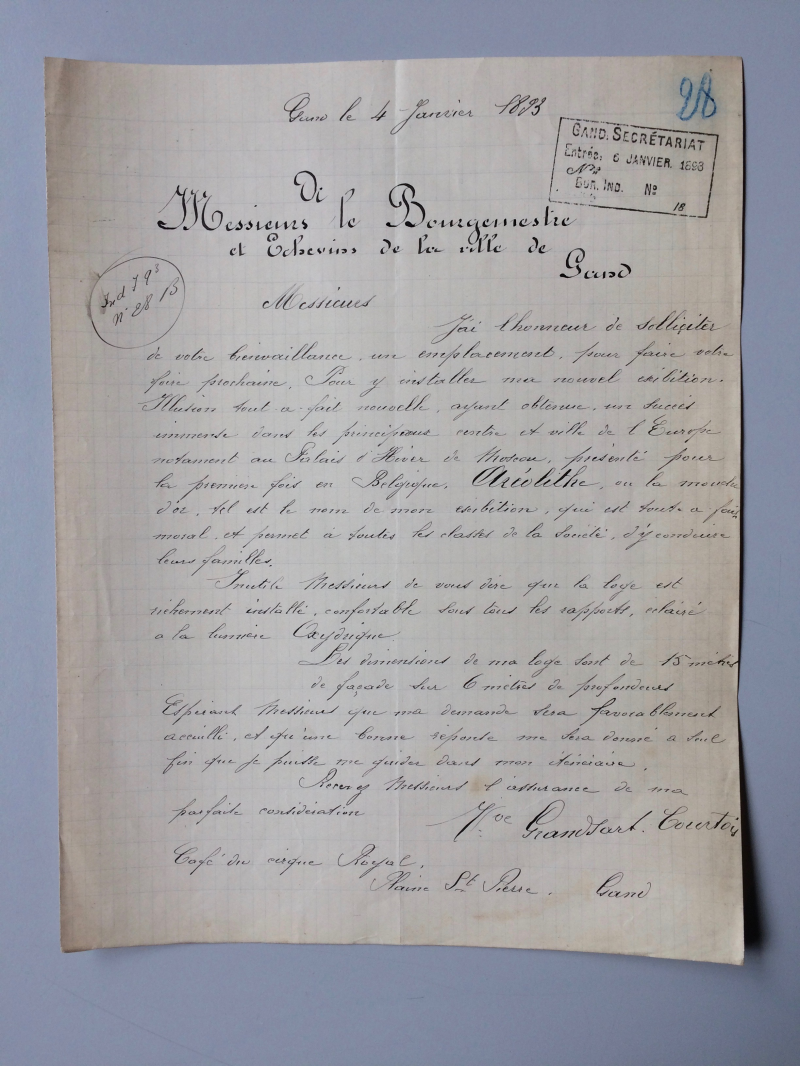 28
Gand le 4 Janvier 1893
GAND. SECRÉTARIAT
Entrée: 6 JANVIER. 1893
Bur. Ind. No
18
Messieurs le Bourgemestre
et Echevins de la ville de
Gand
Ind 793
N° 28 B
Messieurs
J'ai l'honneur de solliciter
de votre bienvaillance, un emplacement, pour faire votre
foire prochaine. Pour y installer ma nouvel exibition.
Illusion tout-a-fait nouvelle, ayant obtenue, un succès
immense dans les principeaux centre et ville de l'Europe
notament au Palais d'Hiver de Moscou, présenté pour
la premiere fois en Belgique. Aréolithe, ou la mouche
d'or, tel est le nom de mon exibition, qui est toute a fait
moral, et permet à toutes les classes de la Société, d'y conduire
leurs familles.
Inutile Messieurs de vous dire que la loge est
richement installé, confortable sous tous les rapports, éclairé
a la lumière Oxydrique.
Les dimensions de ma loge sont de 15 mètres
de façade sur 6 mètres de profondeurs
Espérant Messieurs que ma demande sera favorablement
accuilli, et qu'une bonne réponse me sera donné a seul
fin que je puisse me guider dans mon itinéraire.
Recevez Messieurs l'assurance de ma
parfaite considération
Vve Grandsart. Courtois
Café du cirque Royal,
Plaine St Pierre. Gand